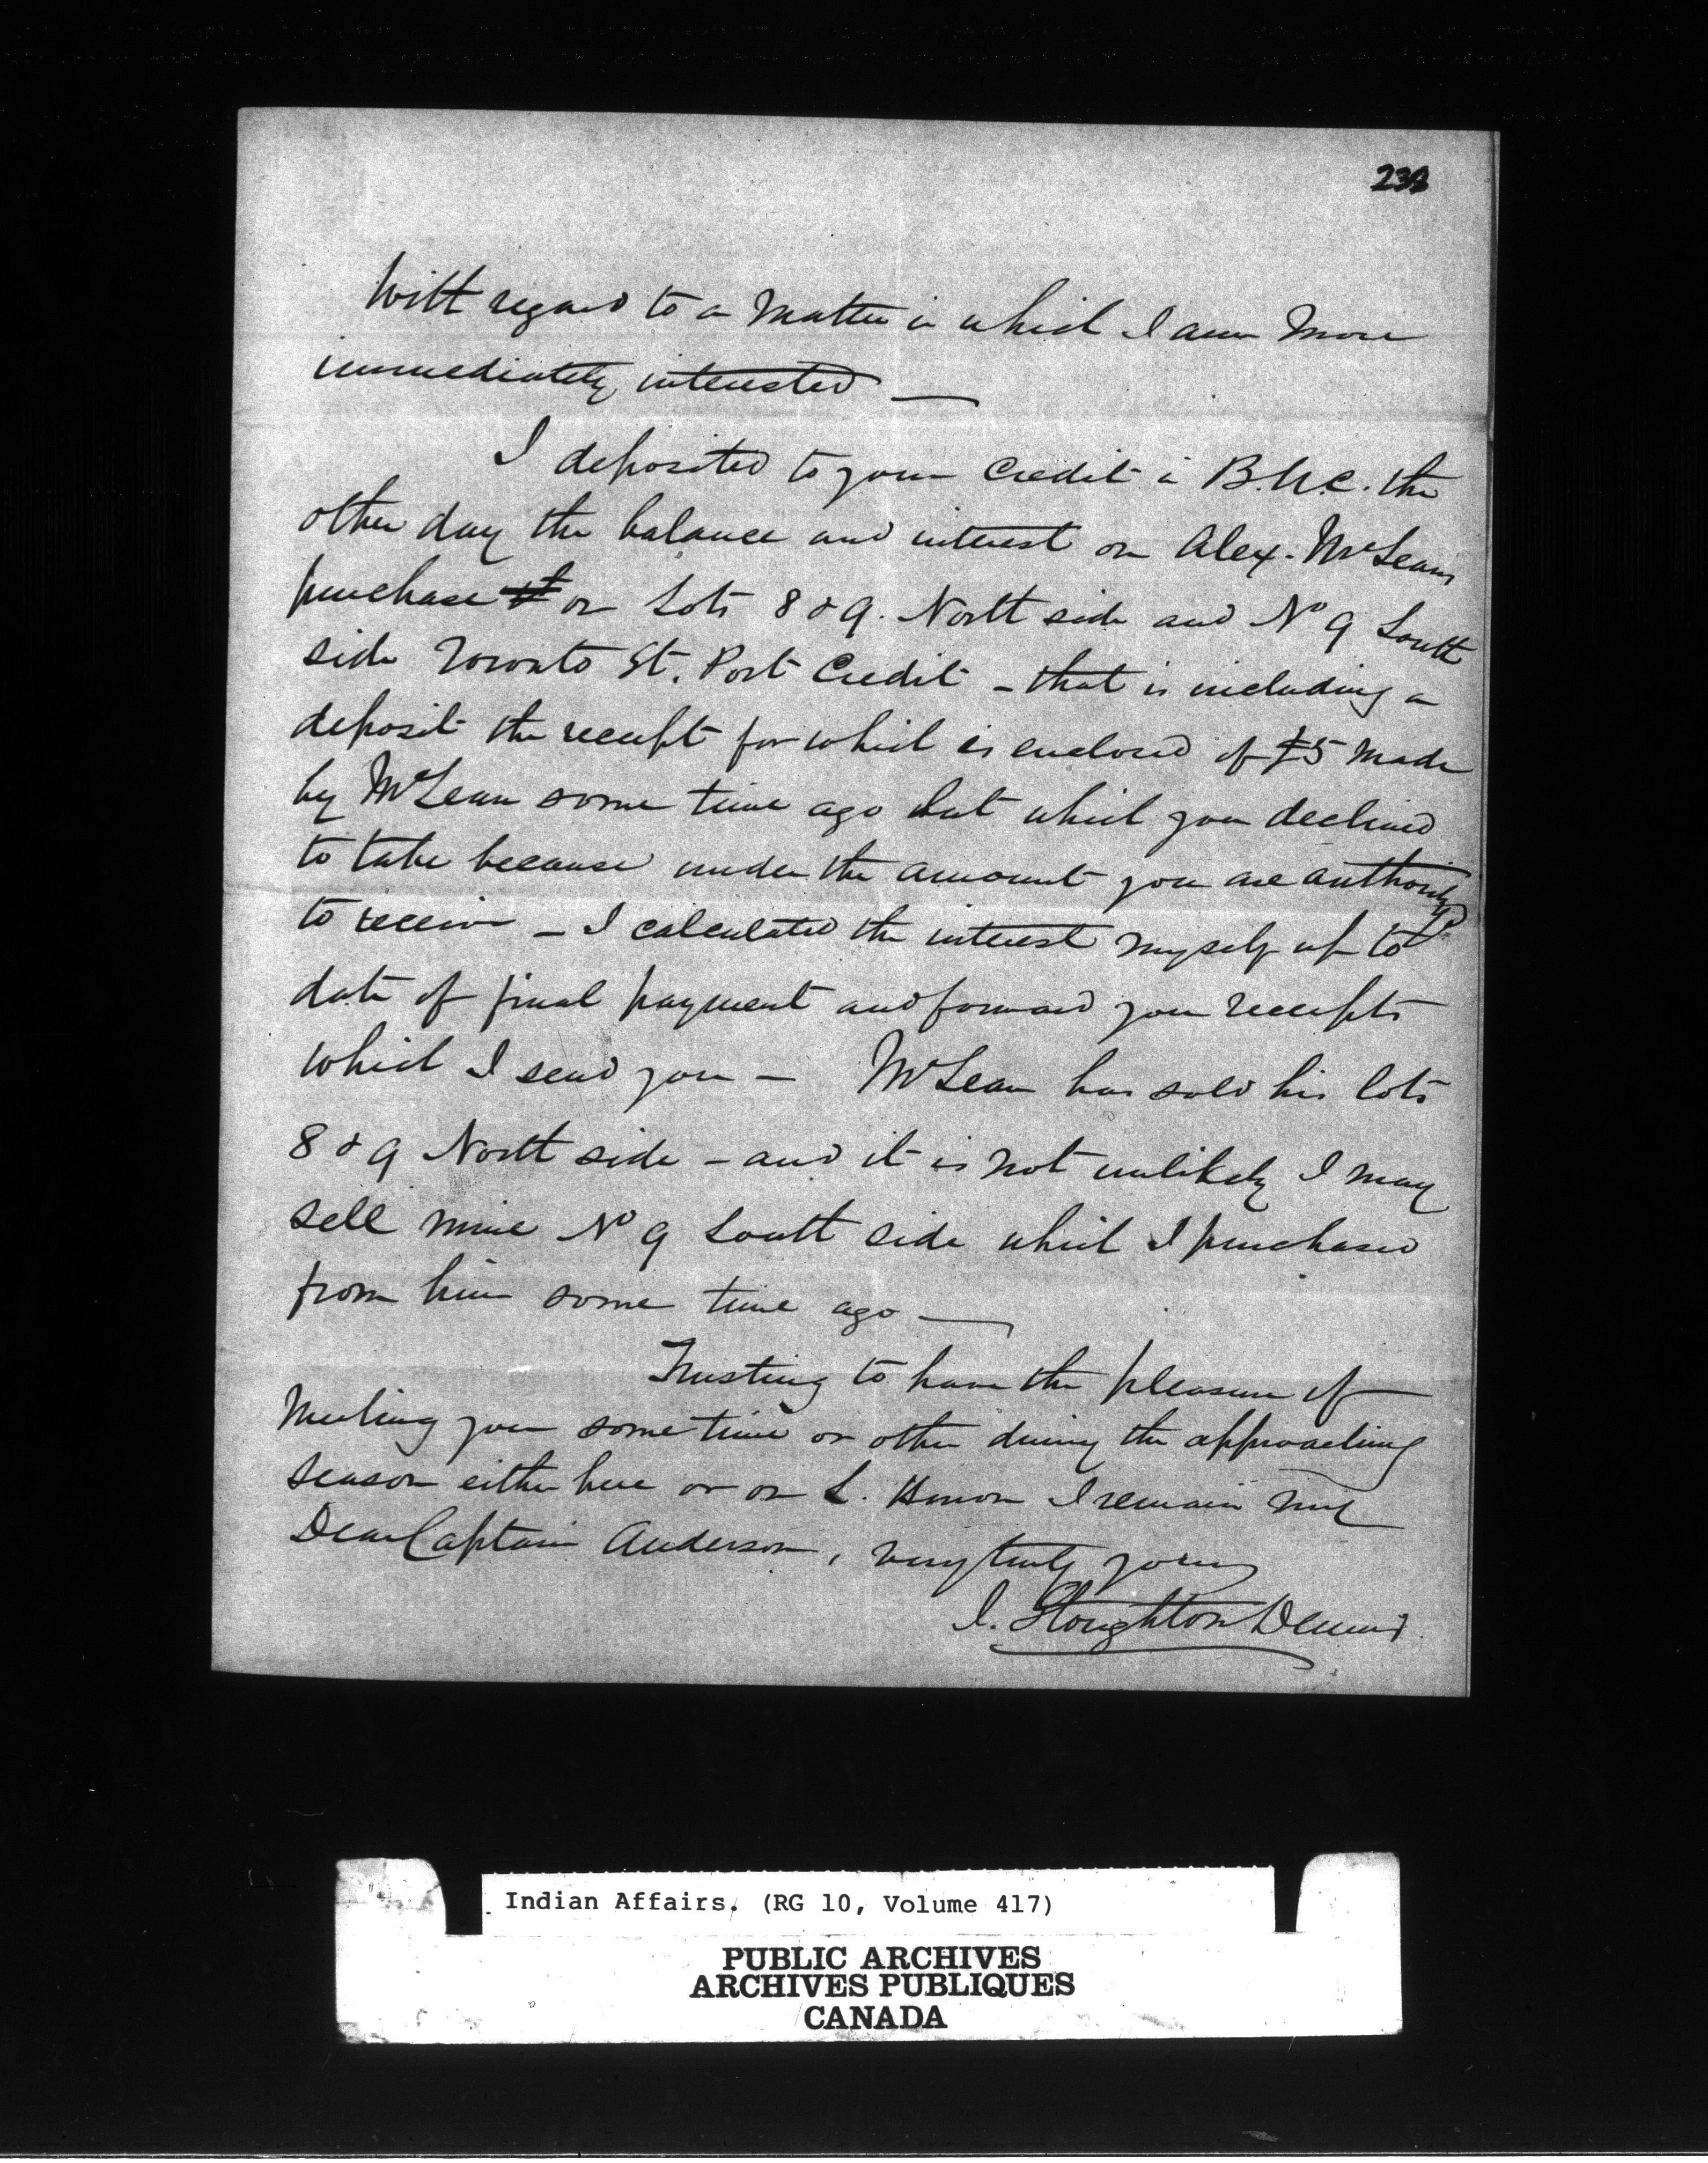 232
With regard to a matter in which I am more
immediately interested —
I deposited to your Credit in B.U.C. the
other day the balance and interest on Alex. McLeans
purchase on Lots 8 & 9. North side and No 9 South
side Toronto St. Port Credit – that is including a
deposit the receipt for which is enclosed of £5 made
by McLean some time ago but which you declined
to take because under the amount you are authorized
to receive – I calculated the interest myself up to
date of final payment and forward you receipts
which I send you – McLean has sold his lots
8 & 9 North side – and it is not unlikely I may
sell mine No 9 South side which I purchased
from him some time ago —
Trusting to have the pleasure of
meeting you some time or other during the approaching
season either here or on L. Huron I remain my
Dear Captain Anderson, very truly yours
J. Stoughton Dennis
Indian Affairs. (RG 10, Volume 417)
PUBLIC ARCHIVES
ARCHIVES PUBLIQUES
CANADA